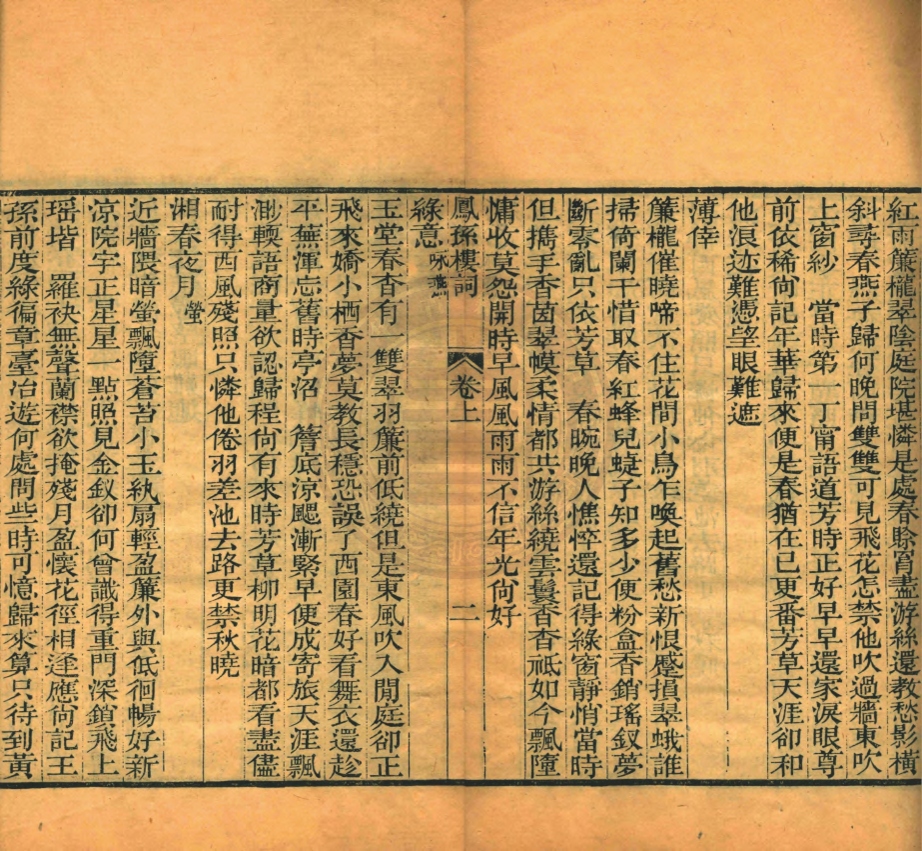 紅雨簾櫳翠陰庭院堪憐是處春賒賓盡游絲還教愁影橫
斜尋春燕子歸何晚問雙雙可見飛花怎禁他吹過牆東吹
上窗紗　當時第一丁甯語道芳時正好早早還家淚眼尊
前依稀尙記年華歸來便是春猶在已更番芳草天涯卻和
他浪迹難憑望眼難遮
薄倖
簾櫳催曉啼不住花間小鳥乍喚起舊愁新恨蹙損翠蛾誰
掃倚闌干惜取春紅蜂兒蜨子知多少便粉盒香銷瑤釵夢
斷零亂只依芳草　春晼晚人憔悴還記得綠窗靜悄當時
但攜手香茵翠幙柔情都共游絲繞雲鬟香杳祗如今飄墮
慵收莫怨開時早風風雨雨不信年光尙好
鳳孫樓詞　卷上　二
綠意咏燕
玉堂春杳有一雙翠羽簾前低繞但是東風吹入閒庭卻正
飛來嬌小栖香夢莫教長穩恐誤了西園春好看舞衣還趁
平蕪渾忘舊時亭沼　簷底涼颸漸緊早便成寄旅天涯飄
渺輭語商量欲認歸程尙有來時芳草柳明花暗都看盡儘
耐得西風殘照只憐他倦羽差池去路更禁秋曉
湘春夜月螢
近牆隈暗螢飄墮蒼苔小玉紈扇輕盈簾外與低徊暢好新
涼院宇正星星一點照見金釵卻何曾識得重門深鎖飛上
瑶堦　羅袂無聲蘭襟欲掩殘月盈懷花徑相逢應尙記王
孫前度綠徧章臺冶遊何處問些時可憶歸來算只待到黃